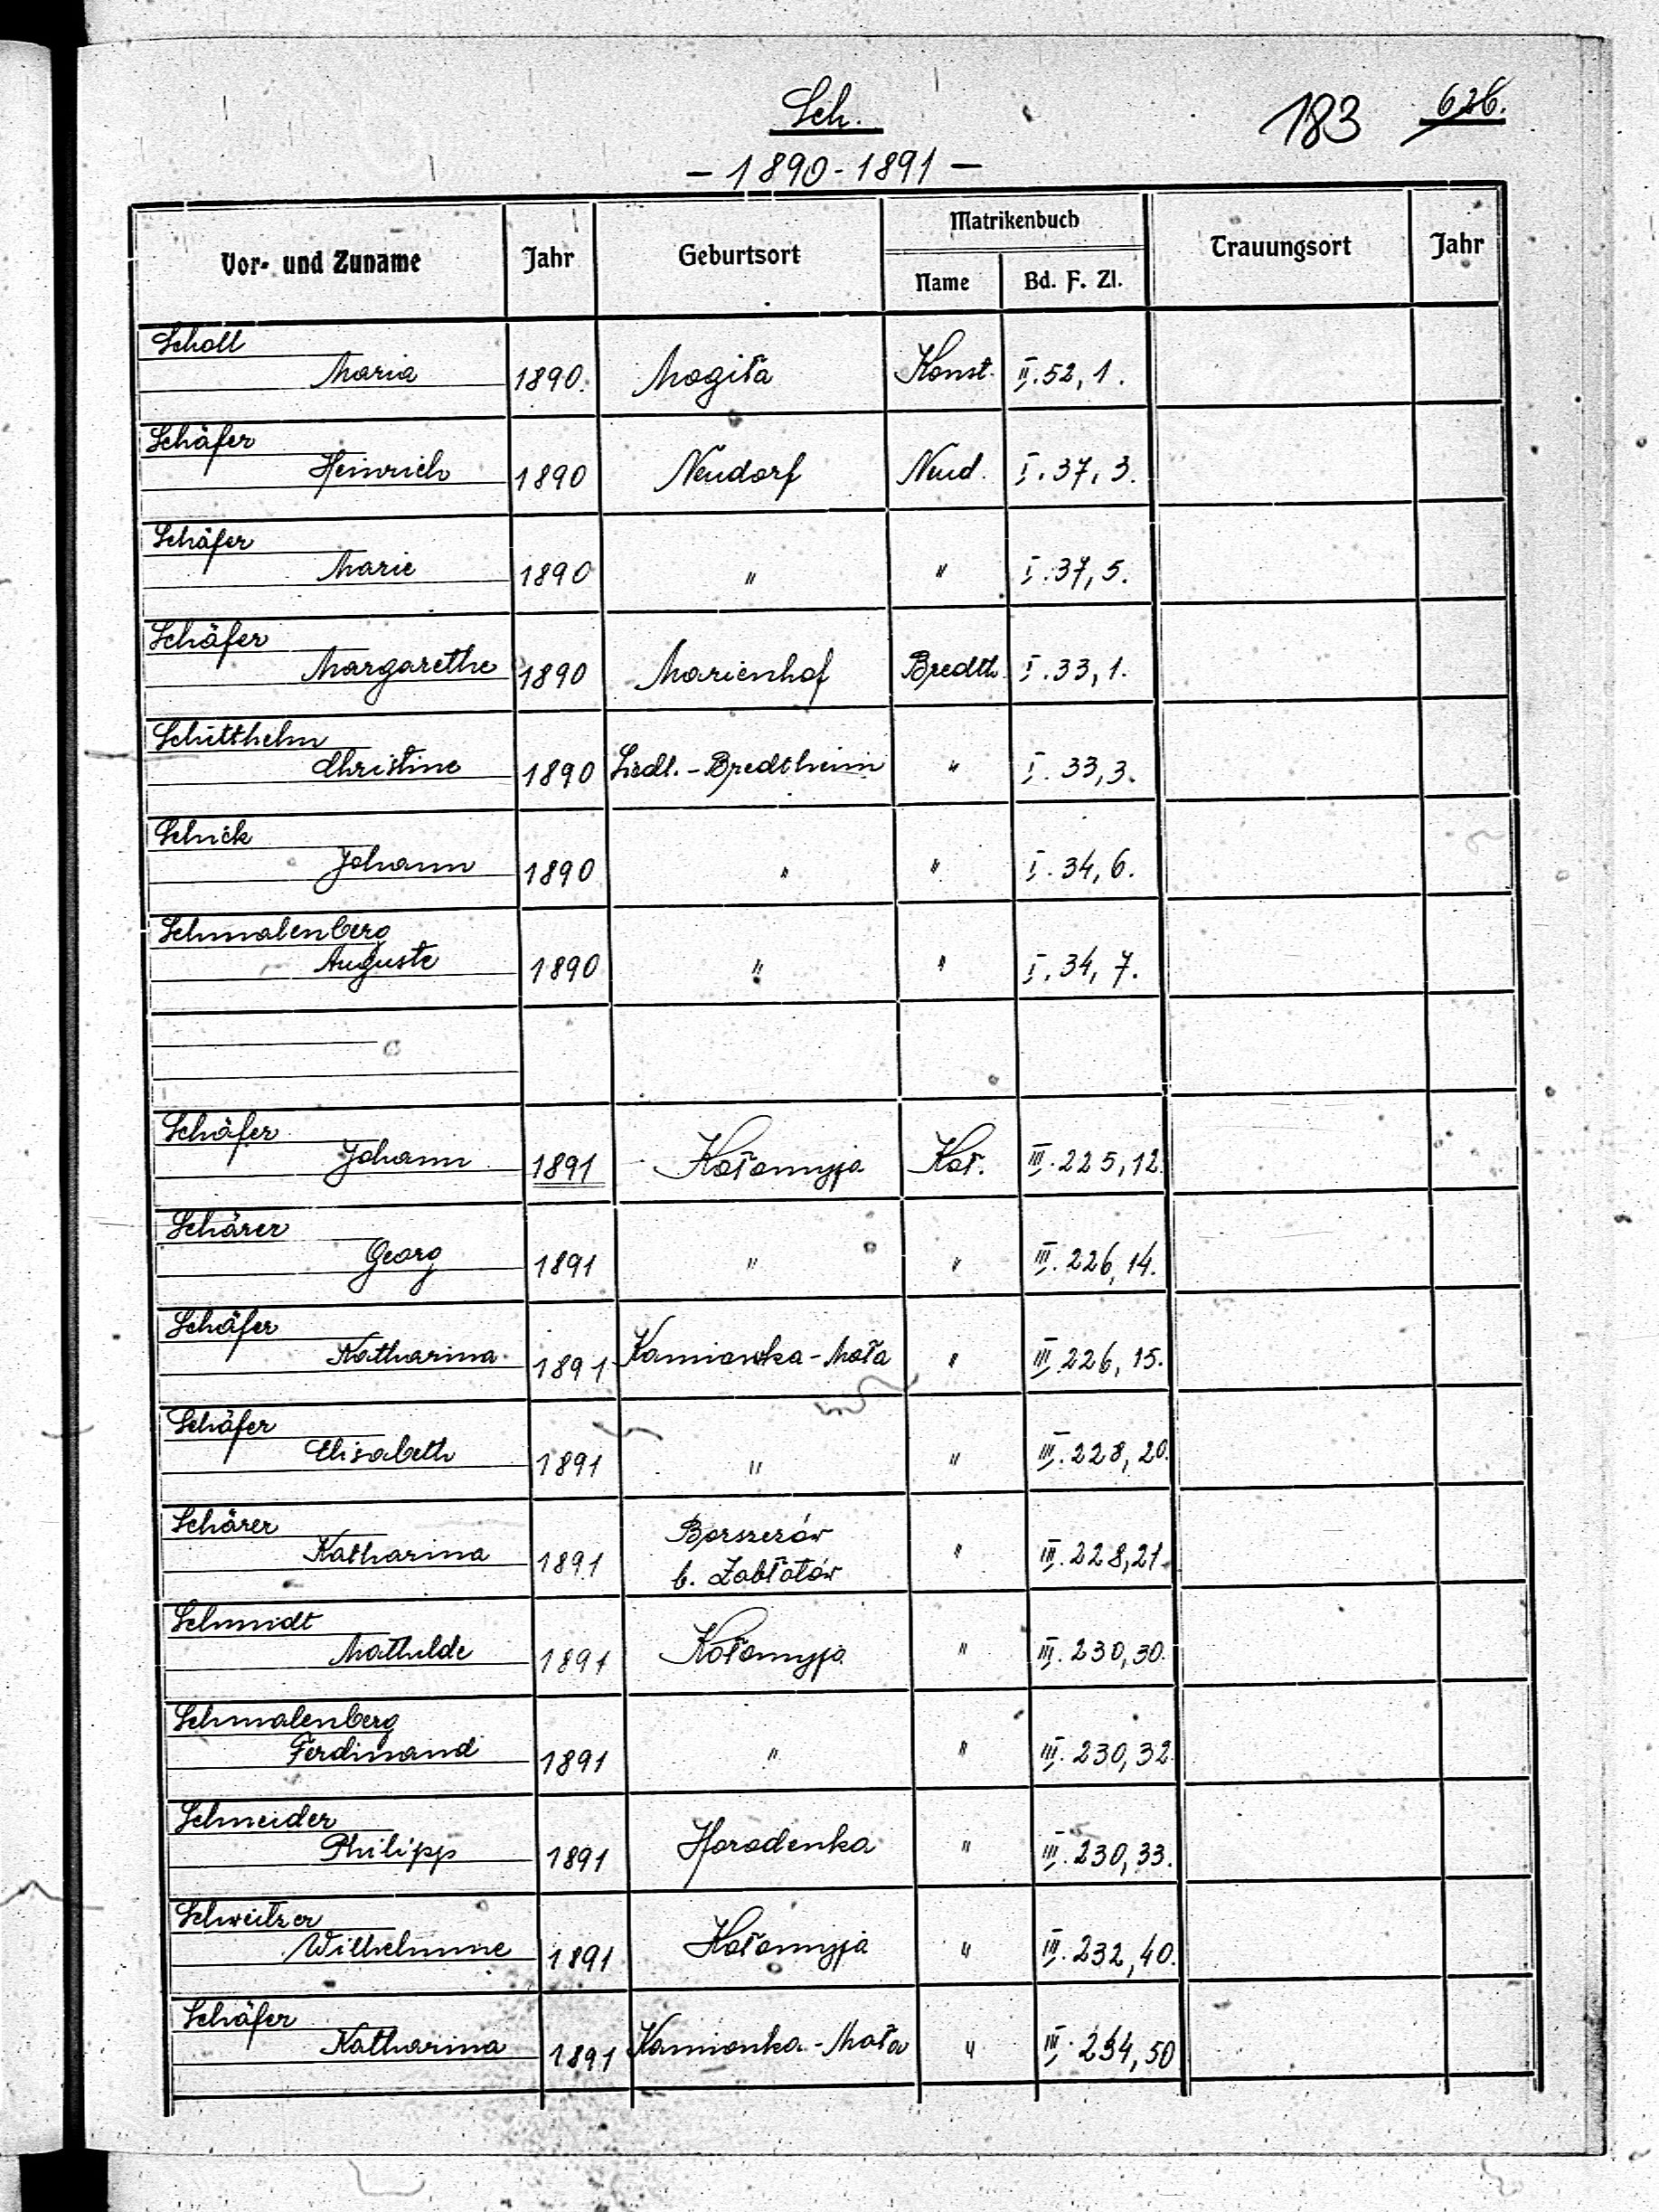 Sch.
183 626.
- 1890-1891 -
Vor- und Zuname Jahr Geburtsort Matrikenbuch Trauungsort Jahr
Name Bd. F. Zl.
Scholl
Maria 1890. Mogiła Konst. II. 52, 1.
Schäfer
Heinrich 1890 Neudorf Neud. I. 37, 3.
Schäfer
Marie 1890 " " I. 37, 5.
Schäfer
Margarethe 1890 Marienhof Bredth. I. 33, 1.
Schitthelm
Christine 1890 Siedl.-Bredtheim " I. 33, 3.
Schick
Johann 1890 " " I. 34, 6.
Schmalenberg
Auguste 1890 " " I. 34, 7.
Schäfer
Johann 1891 Kołomyja Koł. III. 225, 12.
Schärer
Georg 1891 " " III. 226, 14.
Schäfer
Katharina 1891 Kamionka-Mała " III. 226, 15.
Schäfer
Elisabeth 1891 " " III. 228, 20.
Schärer Borszczów
Katharina 1891 b. Zabłotów " III. 228, 21.
Schmidt
Mathilde 1891 Kołomyja " III. 230, 30.
Schmalenberg
Ferdinand 1891 " " III. 230, 32
Schneider
Philipp 1891 Horodenka " III. 230, 33.
Schweitzer
Wilhelmine 1891 Kołomyja " III. 232, 40.
Schäfer
Katharina 1891 Kamionka-Mała " III. 234, 50